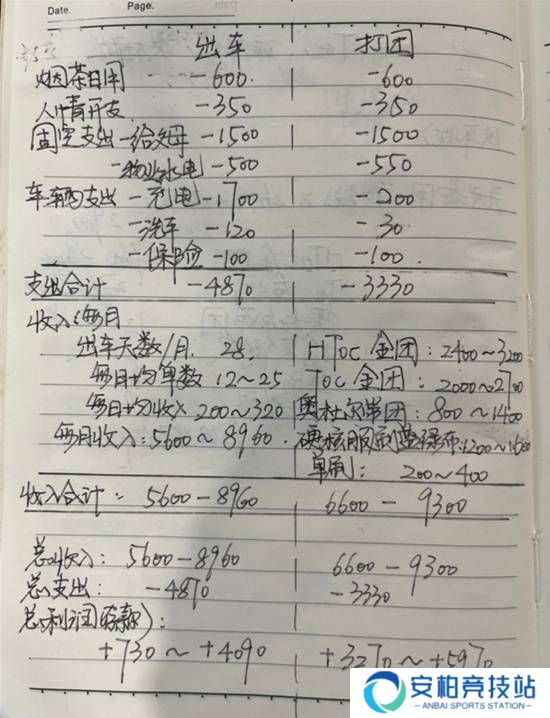 Date. Page. Date.
出车 打团
烟茶日用 -600. -600
人情开支 -350 -350
固定支出-给父母 -1500 -1500
-物业水电 -500 -550
车辆支出-充电 -1700 -200
-洗车 -120 -30
-保险 -100 -100.
支出合计 -4870 -3330
收入(每月
出车天数/月. 28. HToc 金团: 2400~3200
每日均单数 12~25 Toc 金团: 2000~2700
每日均收入 200~320 奥杜尔单团: 800~1400
每月收入: 5600~8960. 硬核服刷 1200~1600
单刷: 200~400
收入合计: 5600-8960 6600-9300
总收入: 5600-8960 6600-9300
总支出: -4870 -3330
总利润(存款):
+730~+4090 +3270~+5970
安柏竞技站
ANBAI SPORTS STATION